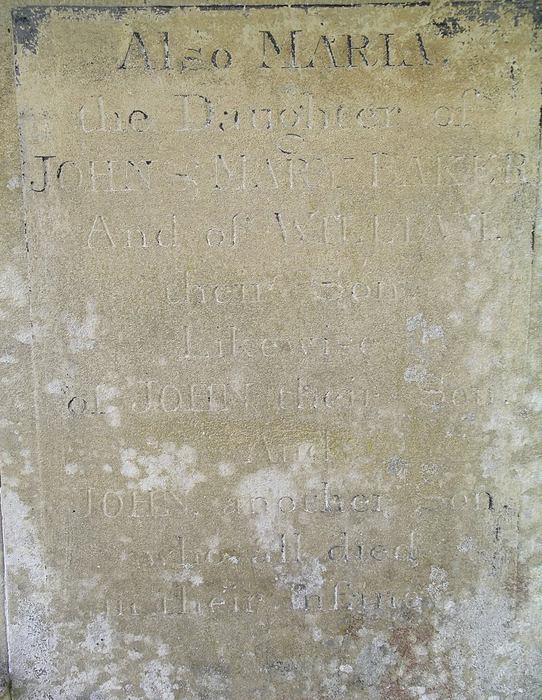 Also MARIA.
the Daughter of
JOHN & MARY BAKER
And of WILLIAM.
their Son.
Likewise
of JOHN their Son.
And
JOHN. another Son.
who all died
in their Infancy